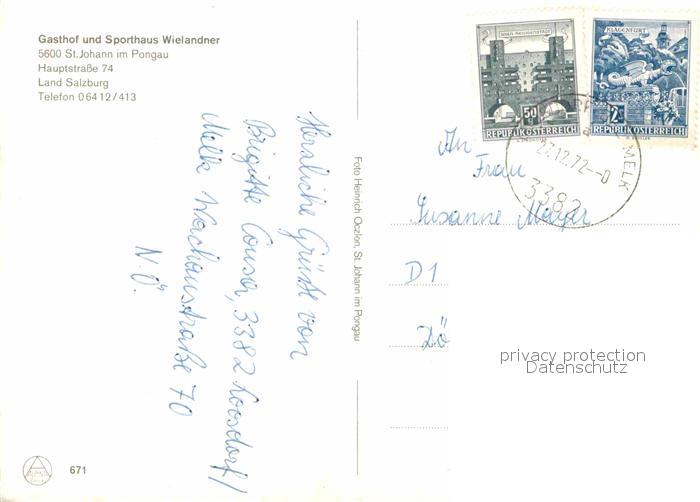 Gasthof und Sporthaus Wielandner
5600 St.Johann im Pongau
Hauptstraße 74
Land Salzburg
Telefon 06412/413
Herzliche Grüße von
Brigitte 3382 Loosdorf/
Melk Wachaustraße 70
N.Ö.
671
Foto Heinrich Oczlon, St. Johann im Pongau
WIEN-HEILIGENSTADT
50
REPUBLIK ÖSTERREICH
KLAGENFURT
2S
REPUBLIK ÖSTERREICH
27.12.72
MELK
3382
An
Frau
Susanne Mayer
D1
privacy protection
Datenschutz